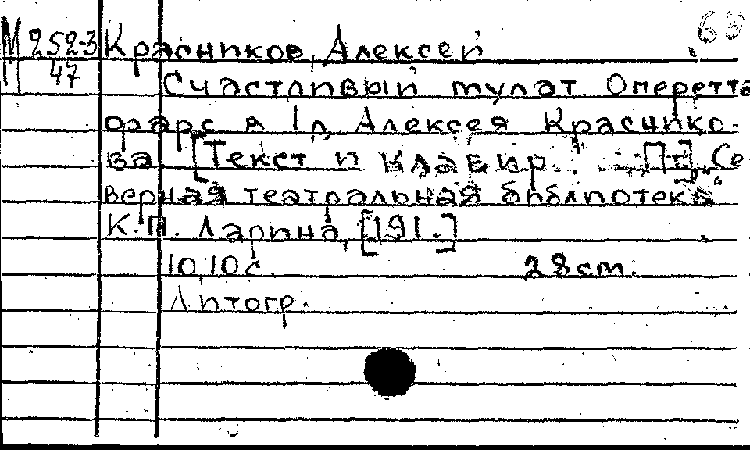 63
М 252-3 Красников, Алексей
47 Счастливый тулат. Оперетта
фарс в 1 д. Алексея Краснико-
ва. [Текст и клавир.] [Пг.] „Се
верная театральная библиотека“
К.П. Ларина, [191.]
10, 10 с. 28 cm.
Литогр.